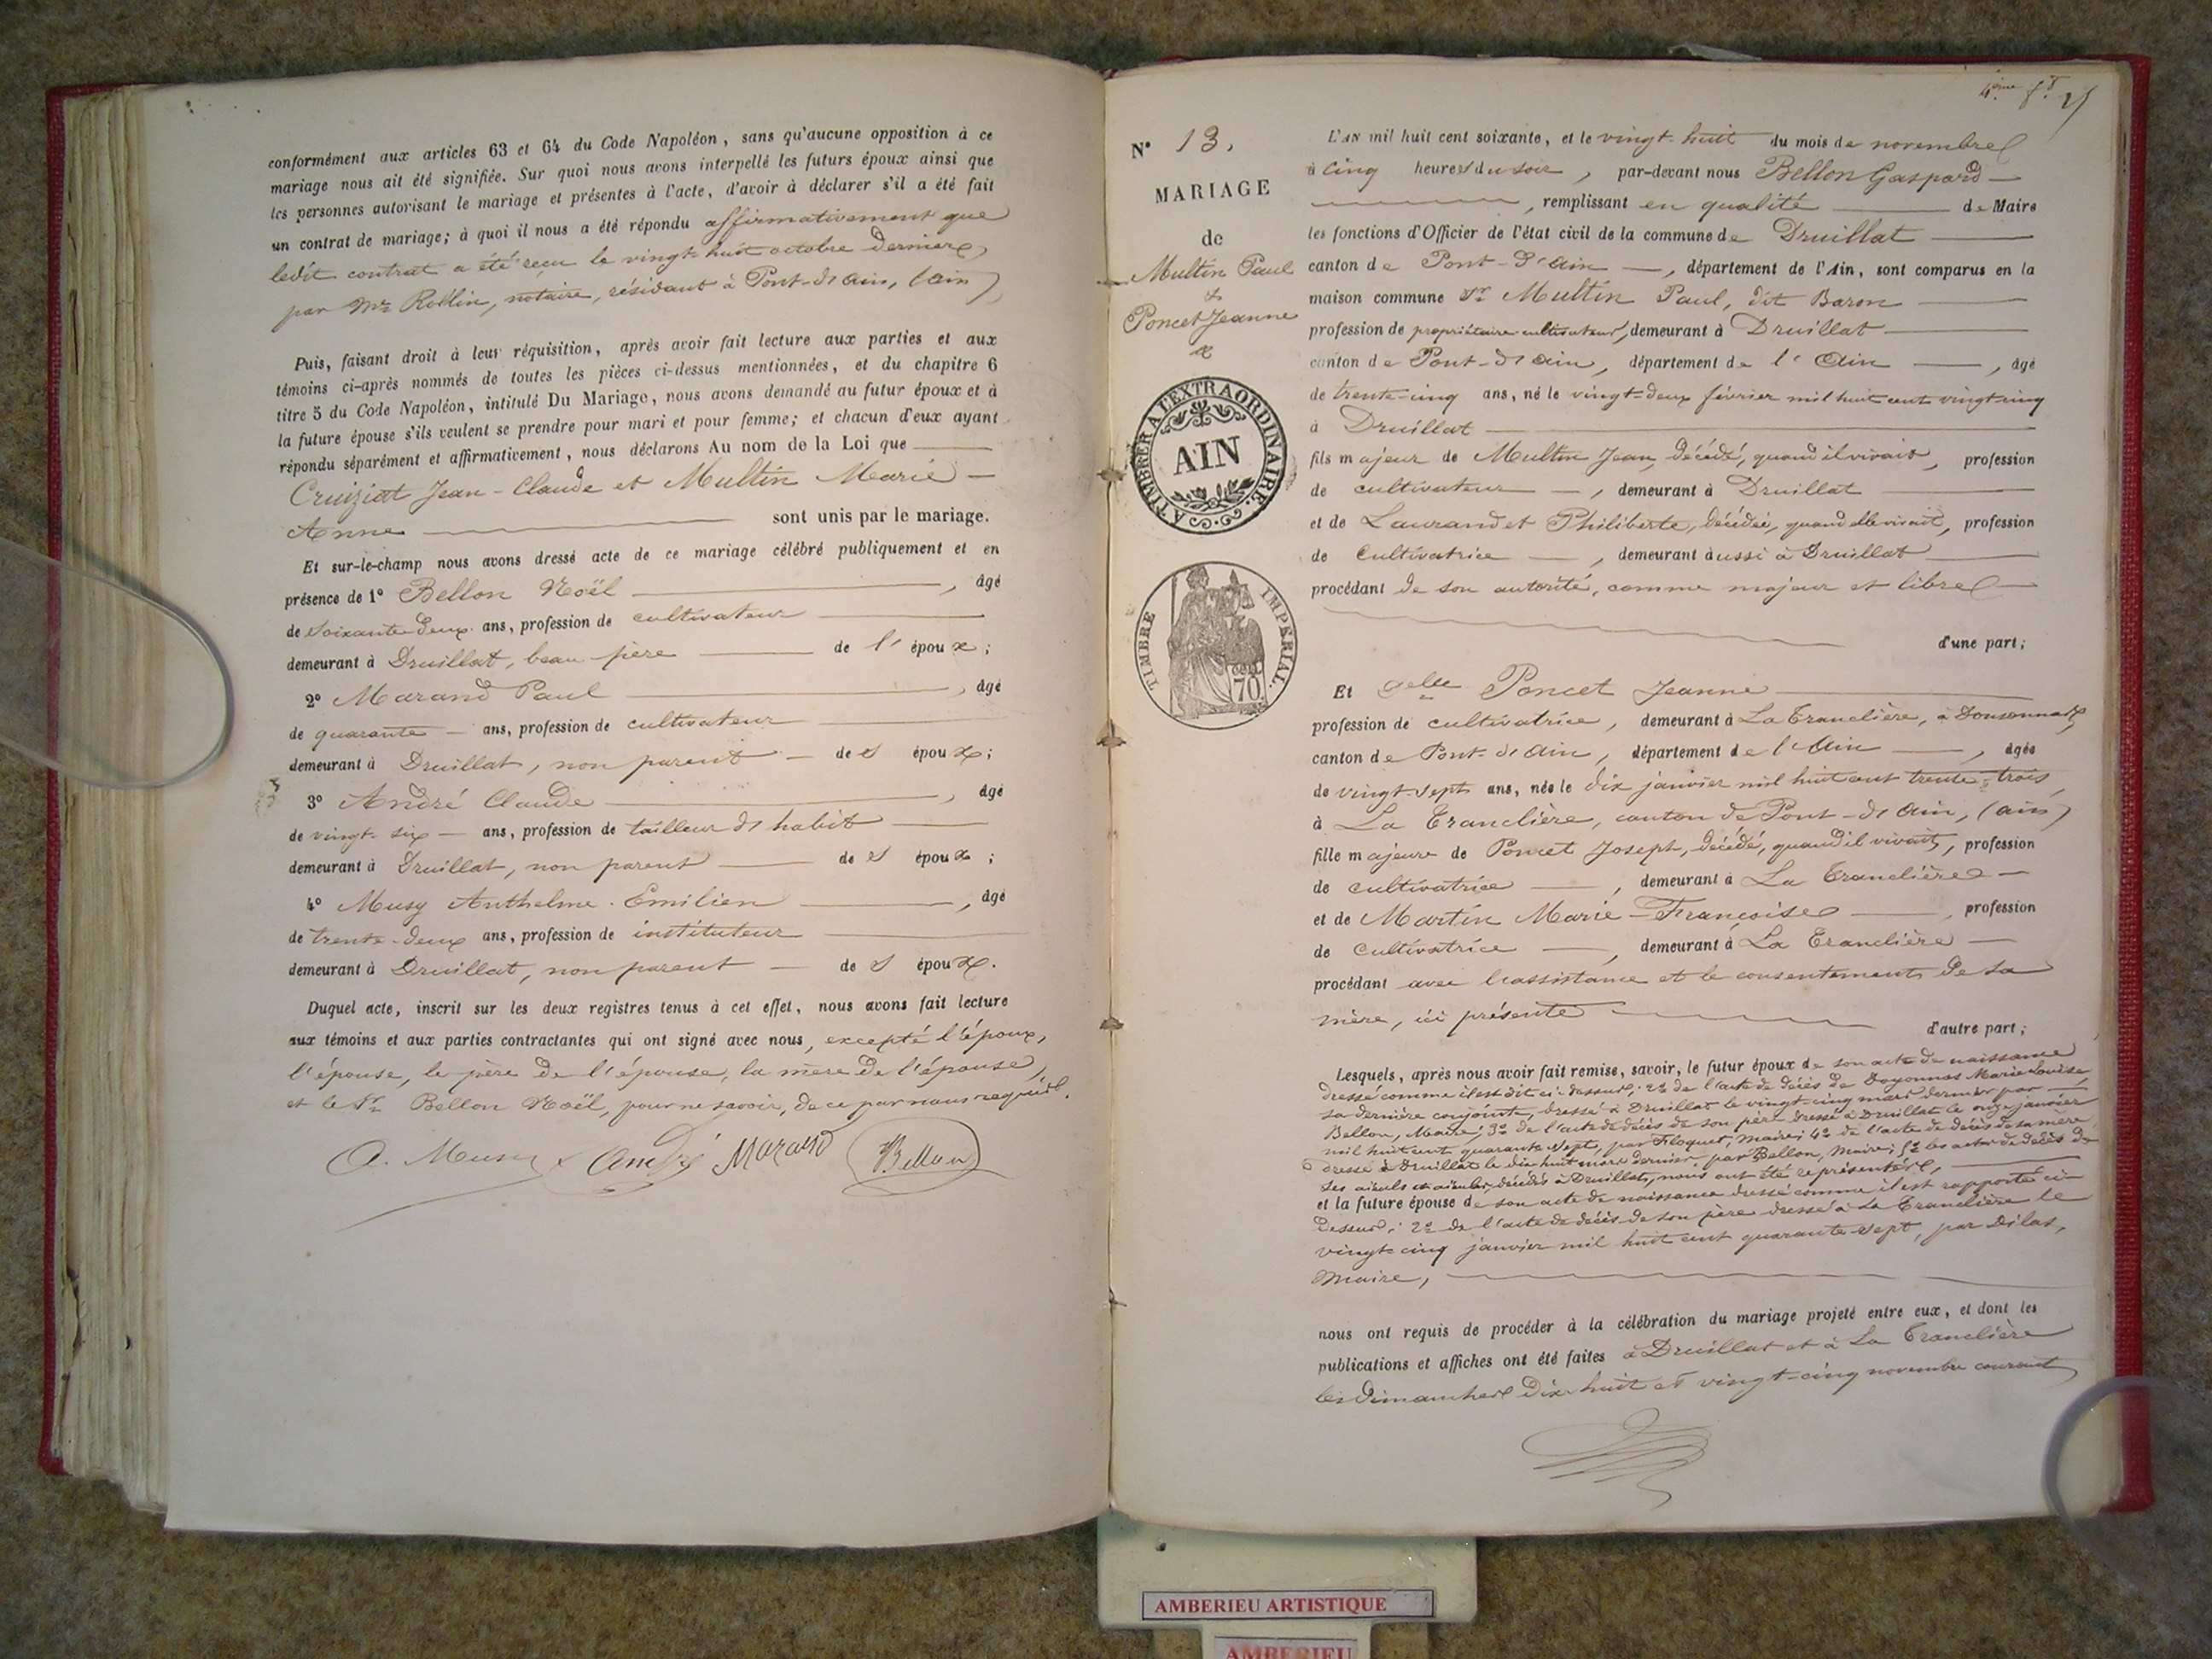 conformément aux articles 63 et 64 du Code Napoléon, sans qu'aucune opposition à ce
mariage nous ait été signifiée. Sur quoi nous avons interpellé les futurs époux ainsi que
les personnes autorisant le mariage et présentes à l'acte, d'avoir à déclarer s'il a été fait
un contrat de mariage; à quoi il nous a été répondu affirmativement que
ledit contrat a été reçu le vingt-huit octobre dernier,
par Me Rollin, notaire, résidant à Pont-d'Ain, (Ain)
Puis, faisant droit à leur réquisition, après avoir fait lecture aux parties et aux
témoins ci-après nommés de toutes les pièces ci-dessus mentionnées, et du chapitre 6
titre 5 du Code Napoléon, intitulé Du Mariage, nous avons demandé au futur époux et à
la future épouse s'ils veulent se prendre pour mari et pour femme; et chacun d'eux ayant
répondu séparément et affirmativement, nous déclarons Au nom de la Loi que
Cruiziat Jean-Claude et Multin Marie-
Anne sont unis par le mariage.
Et sur-le-champ nous avons dressé acte de ce mariage célébré publiquement et en
présence de 1° Bellon Noël, âgé
de soixante-deux ans, profession de cultivateur
demeurant à Druillat, beau-père de l'époux;
2° Marand Paul, âgé
de quarante ans, profession de cultivateur
demeurant à Druillat, non parent des époux;
3° André Claude, âgé
de vingt-six ans, profession de tailleur d'habit
demeurant à Druillat, non parent des époux;
4° Musy Anthelme Emilien, âgé
de trente-deux ans, profession de instituteur
demeurant à Druillat, non parent des époux.
Duquel acte, inscrit sur les deux registres tenus à cet effet, nous avons fait lecture
aux témoins et aux parties contractantes qui ont signé avec nous, excepté l'époux,
l'épouse, le père de l'épouse, la mère de l'épouse,
et le Sr Bellon Noël, pour ne savoir, de ce par nous requis.
A. Musy André Marand Bellon
4ème ft
N° 13.
MARIAGE
de
Multin Paul
&
Poncet Jeanne
A TIMBRER A L'EXTRAORDINAIRE.
AIN
TIMBRE IMPERIAL.
70
L'an mil huit cent soixante, et le vingt-huit du mois de novembre
à cinq heures du soir, par-devant nous Bellon Gaspard
, remplissant en qualité de Maire
les fonctions d'Officier de l'état civil de la commune de Druillat
canton de Pont-d'Ain, département de l'Ain, sont comparus en la
maison commune Sr Multin Paul, dit Baron
profession de propriétaire cultivateur, demeurant à Druillat
canton de Pont-d'Ain, département de l'Ain, âgé
de trente-cinq ans, né le vingt-deux février mil huit cent vingt-cinq
à Druillat
fils majeur de Multin Jean, décédé, quand il vivait, profession
de cultivateur, demeurant à Druillat
et de Laurandet Philiberte, décédée, quand elle vivait, profession
de cultivatrice, demeurant aussi à Druillat
procédant de son autorité, comme majeur et libre
d'une part;
Et Delle Poncet Jeanne
profession de cultivatrice, demeurant à La Tranclière, à
canton de Pont-d'Ain, département de l'Ain, âgée
de vingt-sept ans, née le dix janvier mil huit cent trente-trois,
à La Tranclière, canton de Pont-d'Ain, (Ain)
fille majeure de Poncet Joseph, décédé, quand il vivait, profession
de cultivatrice, demeurant à La Tranclière
et de Martin Marie-Françoise, profession
de cultivatrice, demeurant à La Tranclière
procédant avec l'assistance et le consentement de sa
mère, ici présente
d'autre part;
Lesquels, après nous avoir fait remise, savoir, le futur époux de son acte de naissance
dressé comme il est dit ci-dessus; 2° de l'acte de décès de Marie Louise,
sa dernière conjointe, dressé à Druillat le vingt-cinq mars dernier par
Bellon, Maire; 3° de l'acte de décès de son père dressé à Druillat le onze janvier
mil huit cent quarante-sept, par Floquet, maire; 4° de l'acte de décès de sa mère
dressé à Druillat le dix-huit mars dernier par Bellon, maire; 5° les actes de décès de
ses aïeuls et aïeules, décédés à Druillat, nous ont été représentés,
et la future épouse de son acte de naissance dressé comme il est rapporté ci-
dessus; 2° de l'acte de décès de son père dressé à La Tranclière le
vingt-cinq janvier mil huit cent quarante-sept, par Dilas,
maire,
nous ont requis de procéder à la célébration du mariage projeté entre eux, et dont les
publications et affiches ont été faites à Druillat et à La Tranclière
les dimanches dix-huit et vingt-cinq novembre courant
AMBERIEU ARTISTIQUE
AMBERIEU